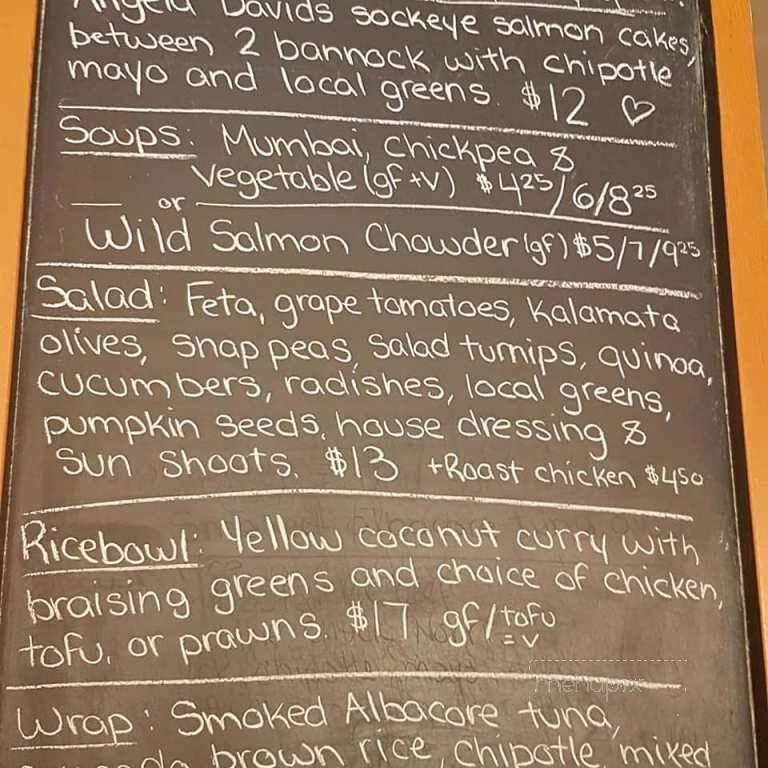 Angela Davids sockeye salmon cakes,
between 2 bannock with chipotle
mayo and local greens. $12 ♡
Soups: Mumbai, Chickpea &
Vegetable (gf + v) $4 25/6/8 25
or
Wild Salmon Chowder (gf) $5/7/9 25
Salad: Feta, grape tomatoes, Kalamata
olives, snap peas, salad turnips, quinoa,
cucumbers, radishes, local greens,
pumpkin seeds, house dressing &
sun shoots. $13 + Roast chicken $4 50
Ricebowl: Yellow coconut curry with
braising greens and choice of chicken,
tofu, or prawns. $17 gf/tofu
= v
menupix
Wrap: Smoked Albacore tuna,
brown rice, chipotle, mixed